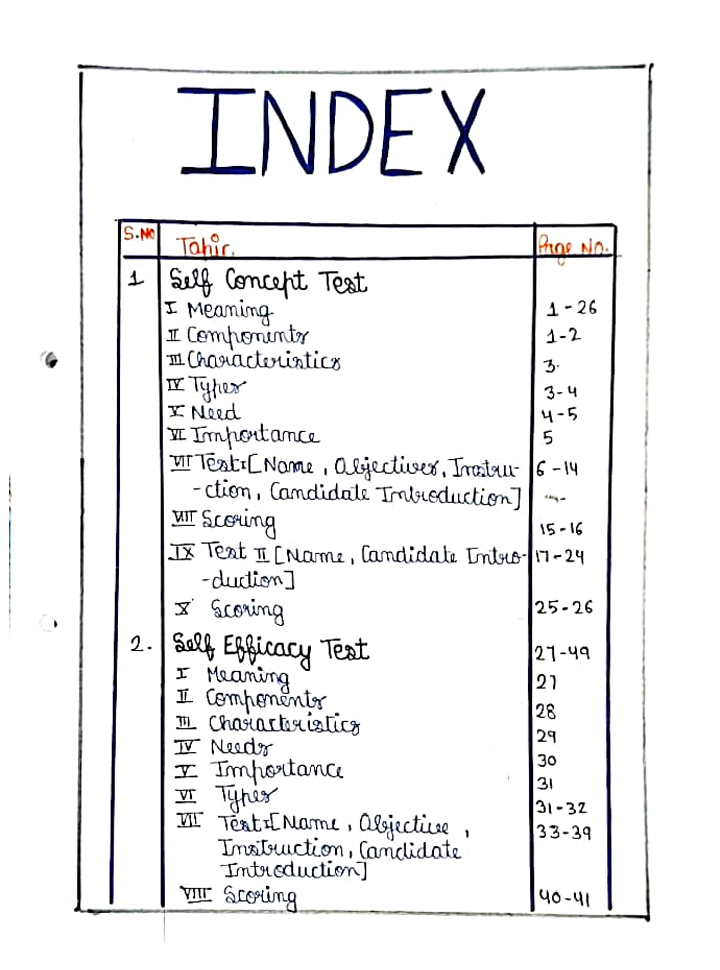 INDEX
S.No Tahir. Page No.
1 Self Concept Test
I Meaning 1-26
II Components 1-2
III Characteristics 3.
IV Types 3-4
V Need 4-5
VI Importance 5
VII Test:[Name, Objectives, Instru- 6-14
-ction, Candidate Introduction]
VIII Scoring 15-16
IX Test II [Name, Candidate Intro- 17-24
-duction]
X Scoring 25-26
2. Self Efficacy Test 27-49
I Meaning 27
II Components 28
III Characteristics 29
IV Needs 30
V Importance 31
VI Types 31-32
VII Test:[Name, Objective, 33-39
Instruction, Candidate
Introduction]
VIII Scoring 40-41